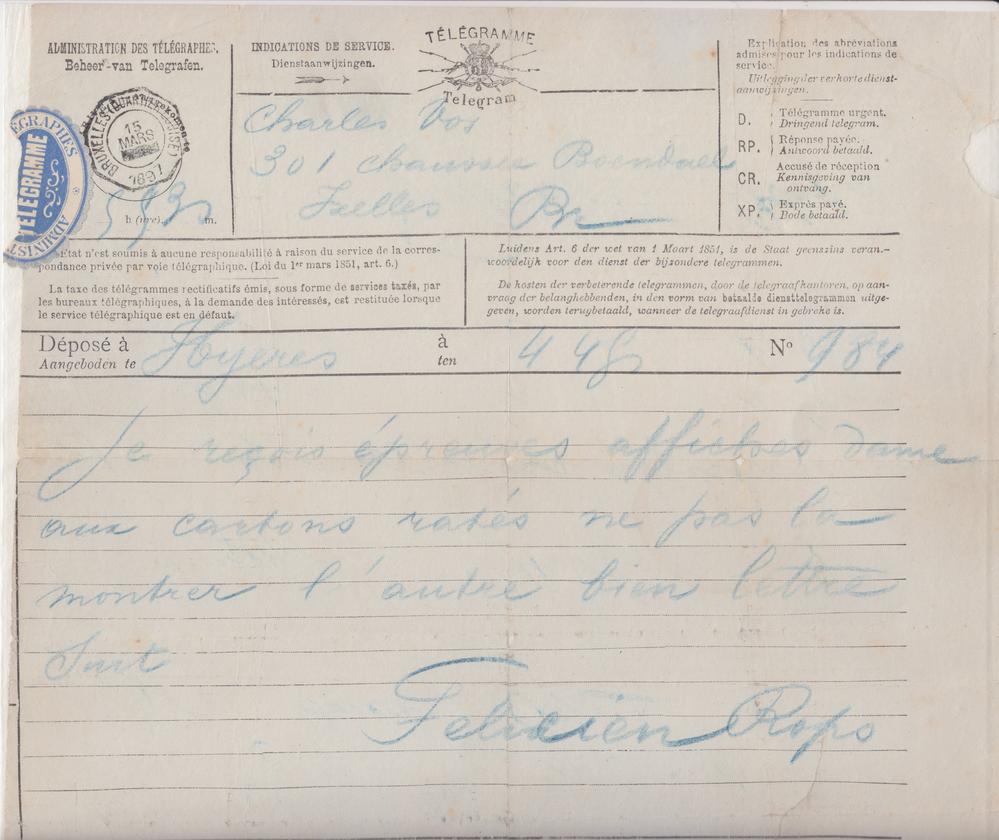 ADMINISTRATION DES TÉLÉGRAPHES.
Beheer van Telegrafen.
INDICATIONS DE SERVICE.
Dienstaanwijzingen.
TÉLÉGRAMME
Telegram
Explication des abréviations
admises pour les indications de
service.
Uitlegging der verkorte dienst-
aanwijzingen.
D. Télégramme urgent.
Dringend telegram.
RP. Réponse payée.
Antwoord betaald.
CR. Accusé de réception
Kennisgeving van
ontvang.
XP. Exprès payé.
Bode betaald.
BRUXELLES (QUARTIER
15
MARS
1897
TÉLÉGRAPHES
TÉLÉGRAMME
ADMINIST
h (ure). m.
Charles Vos
301 chaussée Boendael
Ixelles Br
L'État n'est soumis à aucune responsabilité à raison du service de la corres-
pondance privée par voie télégraphique. (Loi du 1er mars 1851, art. 6.)
La taxe des télégrammes rectificatifs émis, sous forme de services taxés, par
les bureaux télégraphiques, à la demande des intéressés, est restituée lorsque
le service télégraphique est en défaut.
Luidens Art. 6 der wet van 1 Maart 1851, is de Staat geenszins veran-
woordelijk voor den dienst der bijzondere telegrammen.
De kosten der verbeterende telegrammen, door de telegraafkantoren, op aan-
vraag der belanghebbenden, in den vorm van betaalde diensttelegrammen uitge-
geven, worden terugbetaald, wanneer de telegraafdienst in gebreke is.
Déposé à Hyeres à 4 48 N° 984
Aangeboden te ten
Je reçois épreuves affiches dame
aux cartons ratés ne pas la
montrer l'autre bien lettre
Suit
Felicien Rops